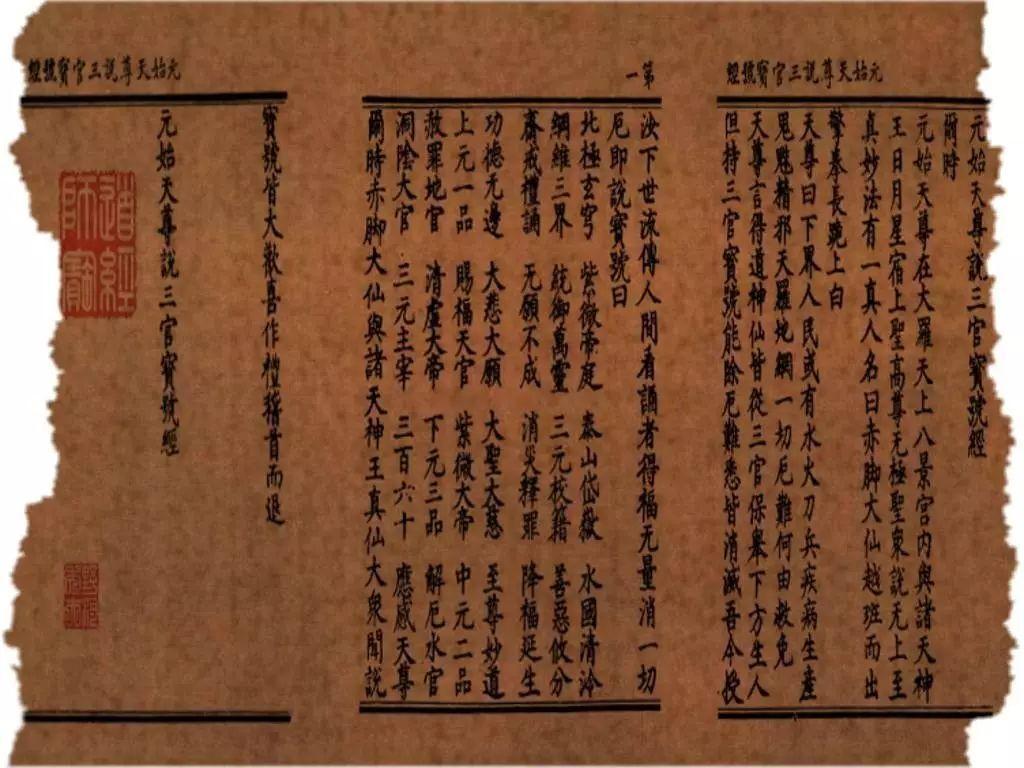 元始天尊說三官寳號經
元始天尊說三官寳號經
爾時
元始天尊在大羅天上八景宮内與諸天神
王日月星宿上聖高尊无極聖衆說无上至
真妙法有一真人名曰赤脚大仙越班而出
擎拳長跪上白
天尊曰下界人民或有水火刀兵疾病生產
鬼魅精邪天羅地網一切厄難何由救免
天尊言得道神仙皆從三官保舉下方生人
但持三官寳號能除厄難悉皆消滅吾今授
第一
汝下世流傳人間看誦者得福无量消一切
厄即說寳號曰
北極玄穹 紫微帝庭 泰山岱嶽 水國清泠
綱維三界 統御萬靈 三元校籍 善惡攸分
齋戒禮誦 无願不成 消災釋罪 降福延生
功德无邊 大悲大願 大聖大慈 至尊妙道
上元一品 賜福天官 紫微大帝 中元二品
赦罪地官 清虛大帝 下元三品 解厄水官
洞陰大官 三元主宰 三百六十 應感天尊
爾時赤脚大仙與諸天神王真仙大衆聞說
元始天尊說三官寳號經
寳號皆大歡喜作禮稽首而退
元始天尊說三官寳號經
道經
師寳